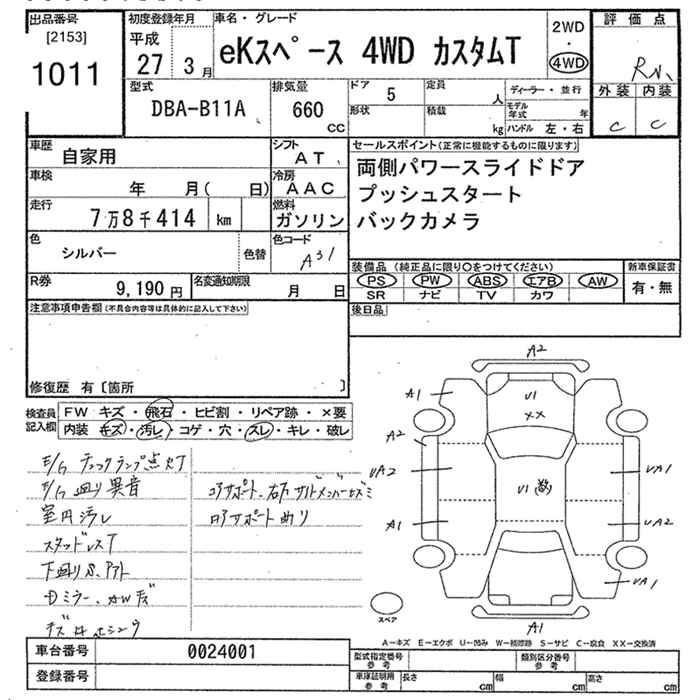 出品番号
[2153]
1011
初度登録年月
平成
27 3月
車名・グレード
eKスペース 4WD カスタムT
2WD
・
4WD
評価点
外装 内装
C C
型式
DBA-B11A
排気量
660
cc
ドア 5
形状
定員 人
積載 kg
ディーラー・並行
モデル年式 年
ハンドル 左・右
車歴
自家用
シフト
AT
車検
年 月( 日)
冷房
AAC
走行
7万8千414 km
燃料
ガソリン
色
シルバー
色替
色コード
A31
R券
9,190 円
名変通知期限
月 日
セールスポイント(正常に機能するものに限ります)
両側パワースライドドア
プッシュスタート
バックカメラ
装備品(純正品に限り〇をつけてください)
PS PW ABS エアB AW
SR ナビ TV カワ
新車保証書
有・無
後日品
注意事項申告欄(不具合内容等は具体的に記入して下さい)
修復歴 有〔箇所 〕
検査員記入欄
FW キズ・飛石・ヒビ割・リペア跡・×要
内装 キズ・汚レ・コゲ・穴・スレ・キレ・破レ
E/Gチェックランプ点灯
E/G廻り異音
室内汚レ
スタッドレスT
コアサポート、右フサイドメンバーキズミ
コアサポート曲リ
A2
A1
A2
UA2
A1
U1
××
U1
UA1
UA2
UA1
A1
スペア
A−キズ E−エクボ U−凹み W−補修跡 S−サビ C−腐食 XX−交換済
車台番号 0024001
登録番号
型式指定番号
参考
類別区分番号
参考
車庫証明用
参考
長さ cm
幅 cm
高さ cm